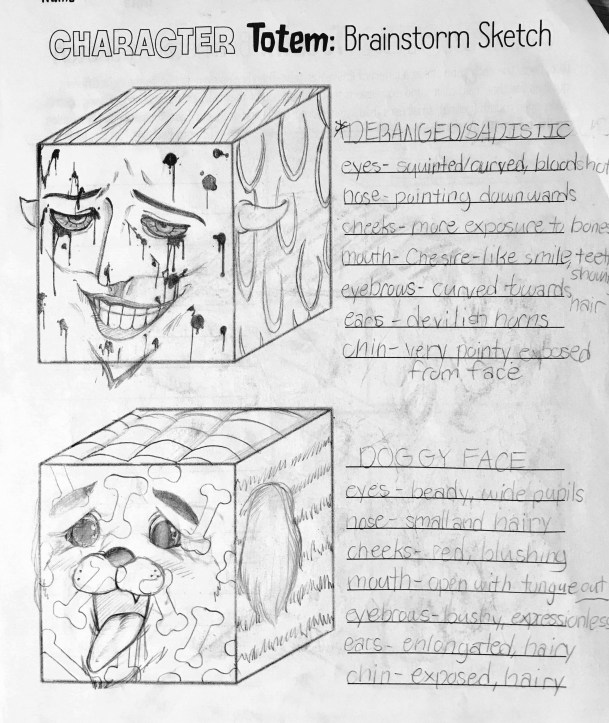 Name
CHARACTER Totem: Brainstorm Sketch
*DERANGED/SADISTIC
eyes- squinted/curved, bloodshot
nose- pointing downwards
cheeks- more exposure to bones
mouth- Chesire-like smile, teeth
shown
eyebrows- curved towards
hair
ears - devilish horns
chin- very pointy exposed
from face
DOGGY FACE
eyes - beady, wide pupils
nose- small and hairy
cheeks- red, blushing
mouth- open with tongue out
eyebrows- bushy, expressionless
ears- enlongated, hairy
chin- exposed, hairy